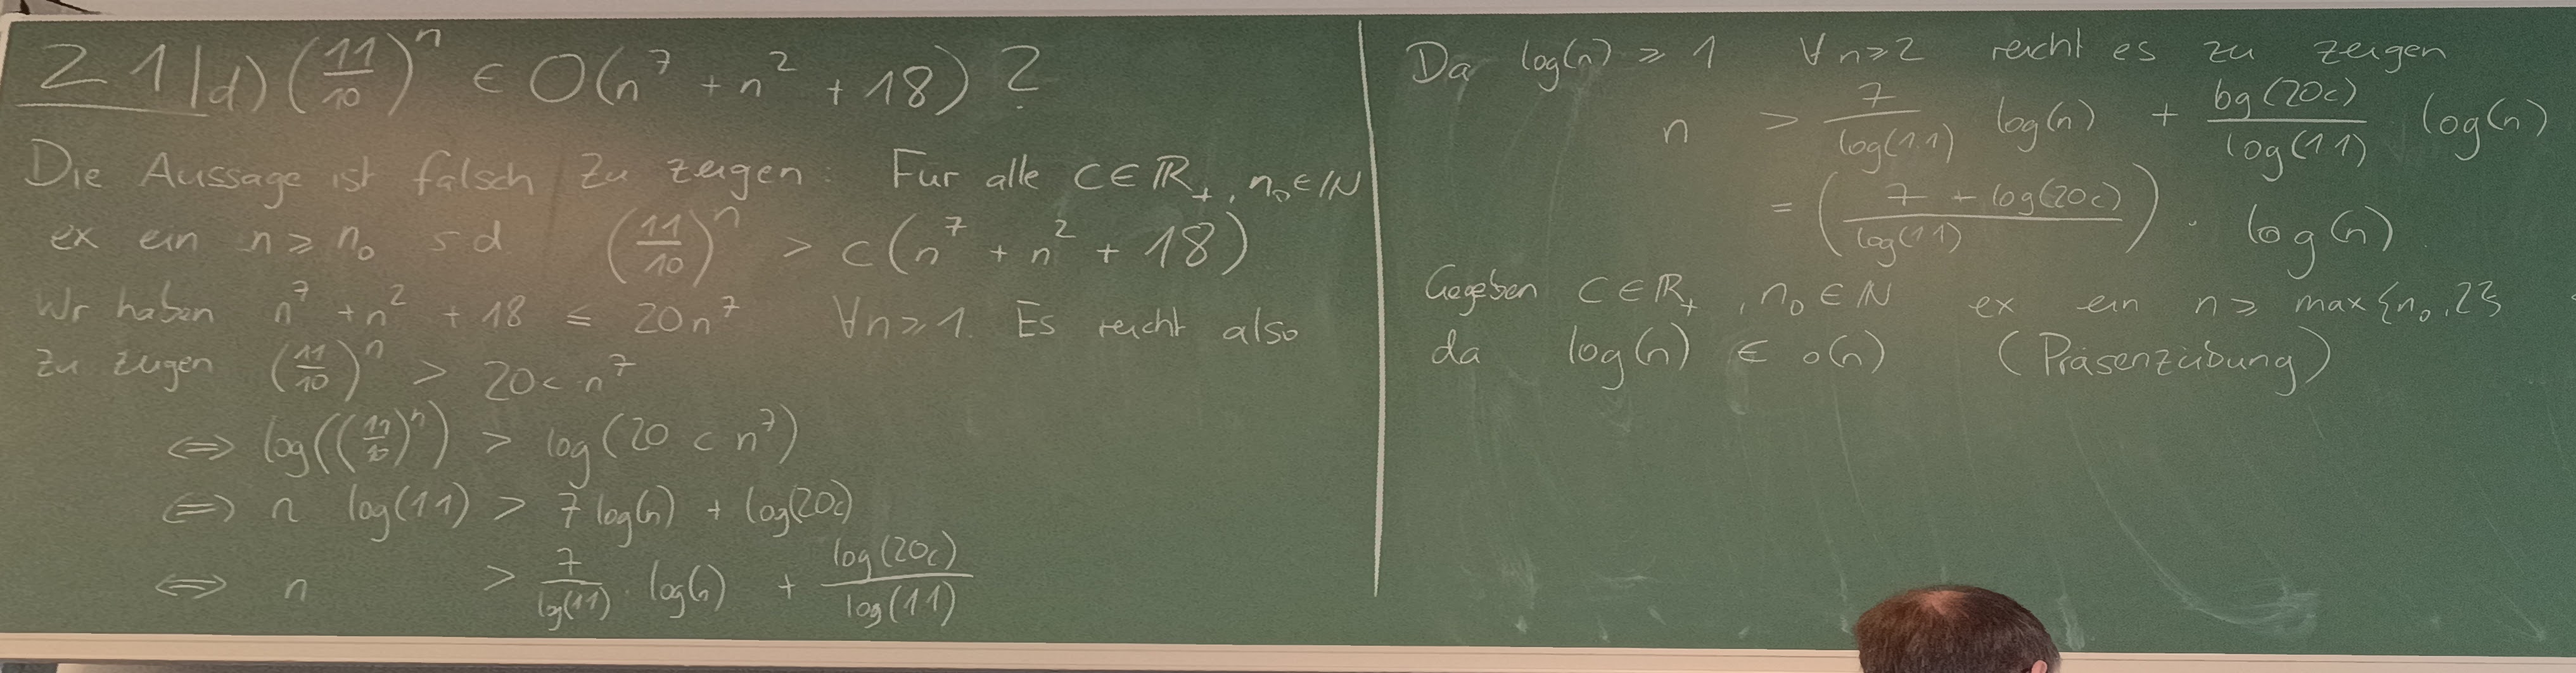 2 1 | d) (11/10)^n ∈ O(n^7 + n^2 + 18) ?
Die Aussage ist falsch Zu zeigen: Für alle c ∈ ℝ₊, n₀ ∈ ℕ
ex ein n ≥ n₀ s d (11/10)^n > c(n^7 + n^2 + 18)
Wir haben n^7 + n^2 + 18 ≤ 20n^7 ∀n ≥ 1. Es reicht also
zu zeigen (11/10)^n > 20c · n^7
⇔ log((11/10)^n) > log(20 c n^7)
⇔ n log(1 1) > 7 log(n) + log(20c)
⇔ n > 7/log(1 1) · log(n) + log(20c)/log(1 1)
Da log(n) ≥ 1 ∀n ≥ 2 reicht es zu zeigen
n > 7/log(1 1) log(n) + log(20c)/log(1 1) log(n)
= ((7 + log(20c))/log(1 1)) · log(n)
Gegeben c ∈ ℝ₊, n₀ ∈ ℕ ex ein n ≥ max{n₀, 2}
da log(n) ∈ o(n) (Präsenzübung)